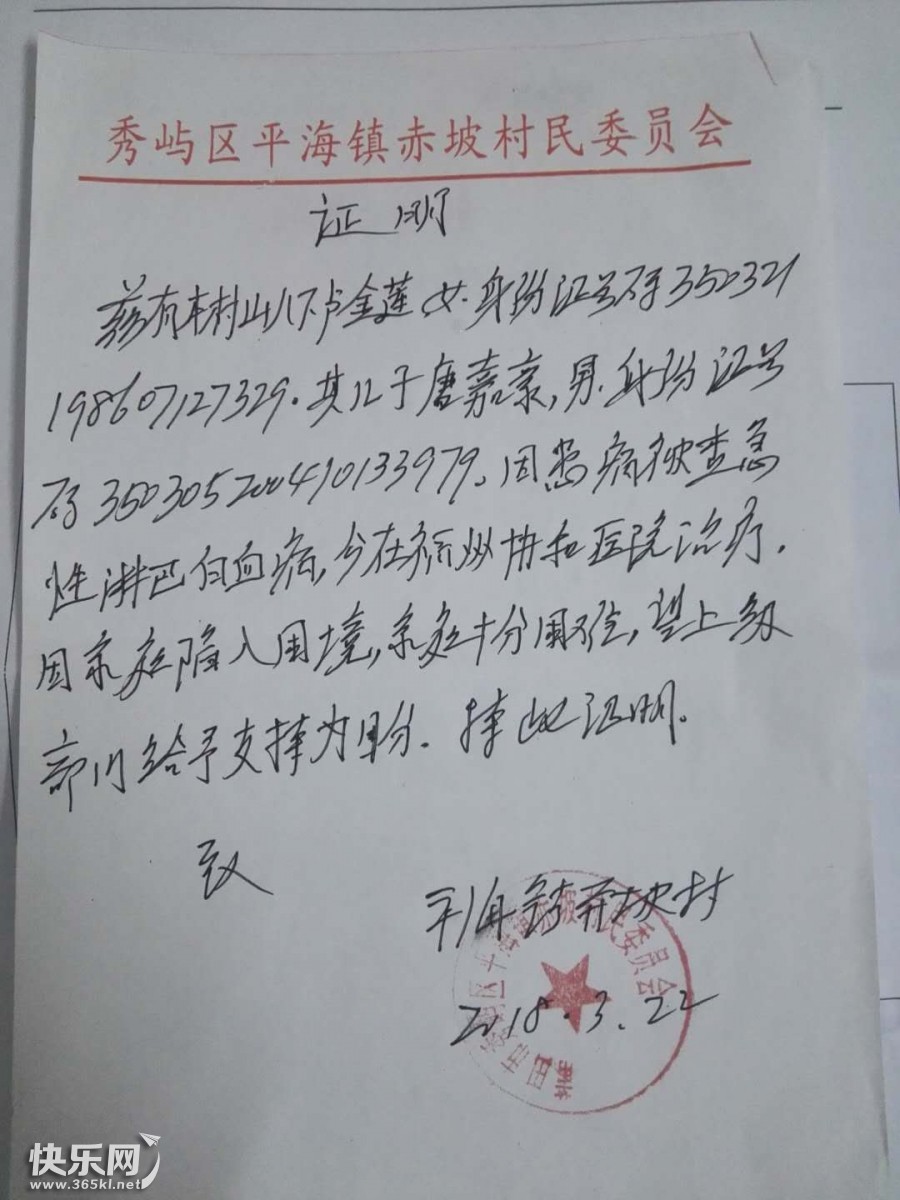 秀屿区平海镇赤坡村民委员会
证明
兹有本村山下卢金莲女.身份证号码350321
198607127329.其儿子唐嘉豪,男.身份证号
码350305200410133979.因患病被查急
性淋巴白血病,今在福州协和医院治疗.
因家庭陷入困境,家庭十分困难,望上级
部门给予支持为盼.特此证明.
致
平海镇赤坡村
2018.3.22
莆田市秀屿区平海镇赤坡村民委员会
快乐网
www.365kl.net